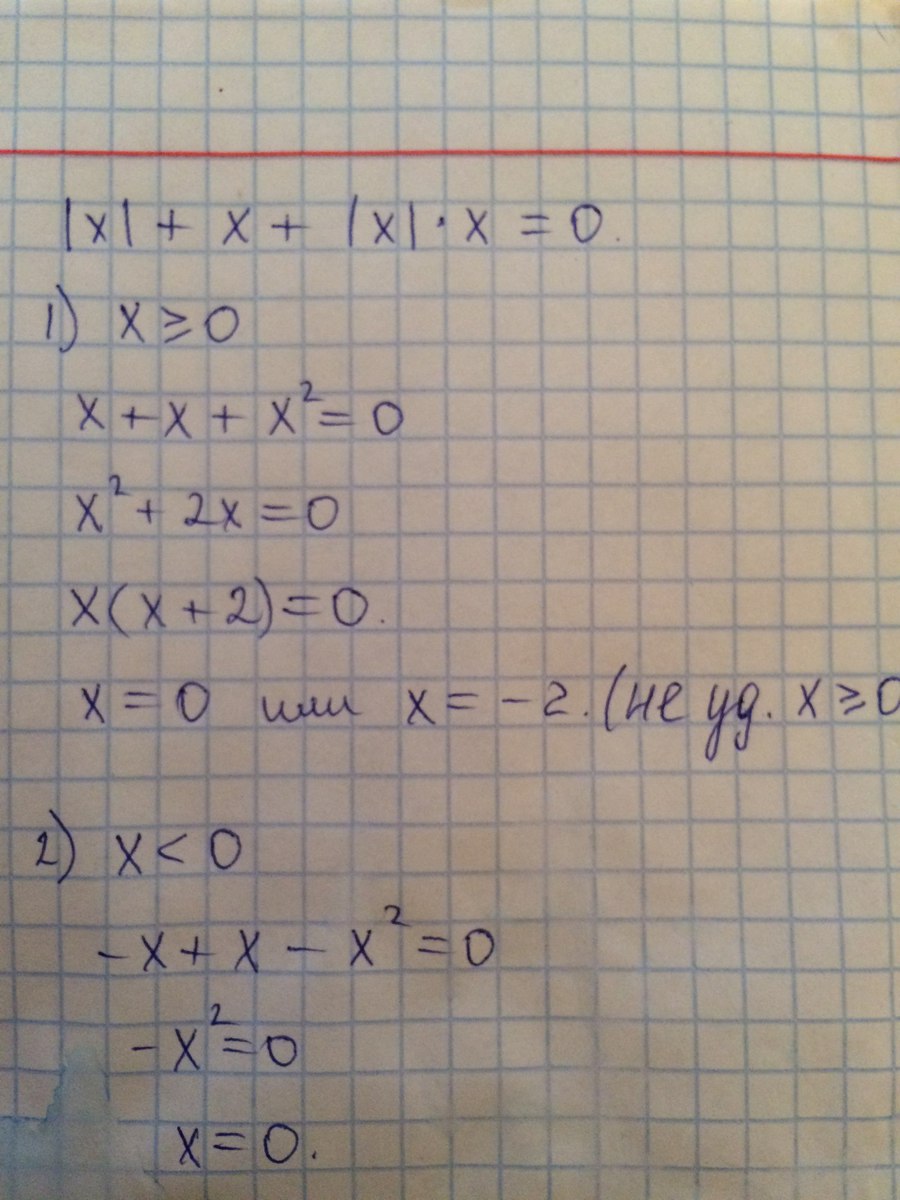 |x| + x + |x| · x = 0.
1) x ≥ 0
x + x + x² = 0
x² + 2x = 0
x(x + 2) = 0.
x = 0 или x = -2. (не уд. x ≥ 0
2) x < 0
-x + x - x² = 0
-x² = 0
x = 0.